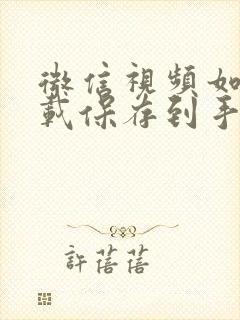 微信視頻如
載保存到手
許蓓蓓